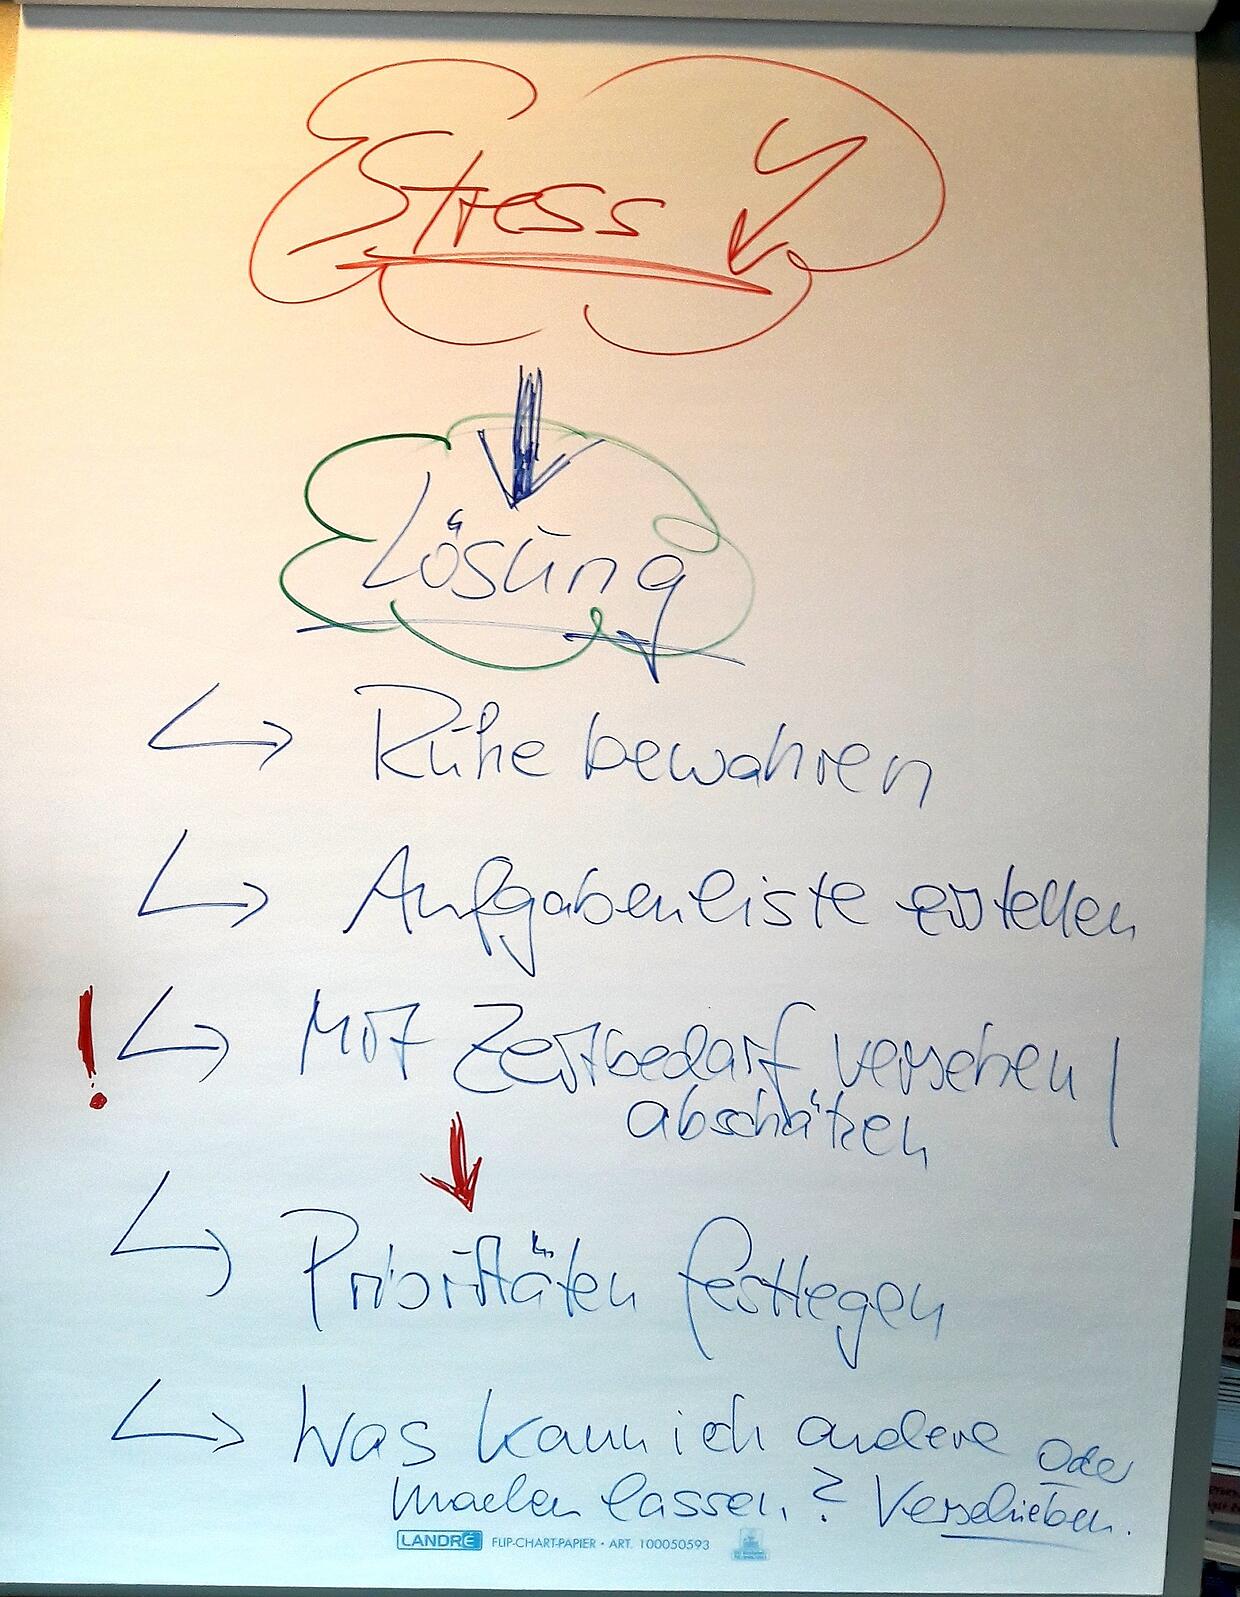 Stress
Lösung
Ruhe bewahren
Aufgabenliste erstellen
! Mit Zeitbedarf versehen /
abschätzen
Prioritäten festlegen
Was kann ich andere
machen lassen? oder Verschieben.
LANDRÉ FLIP-CHART-PAPIER • ART. 100050593